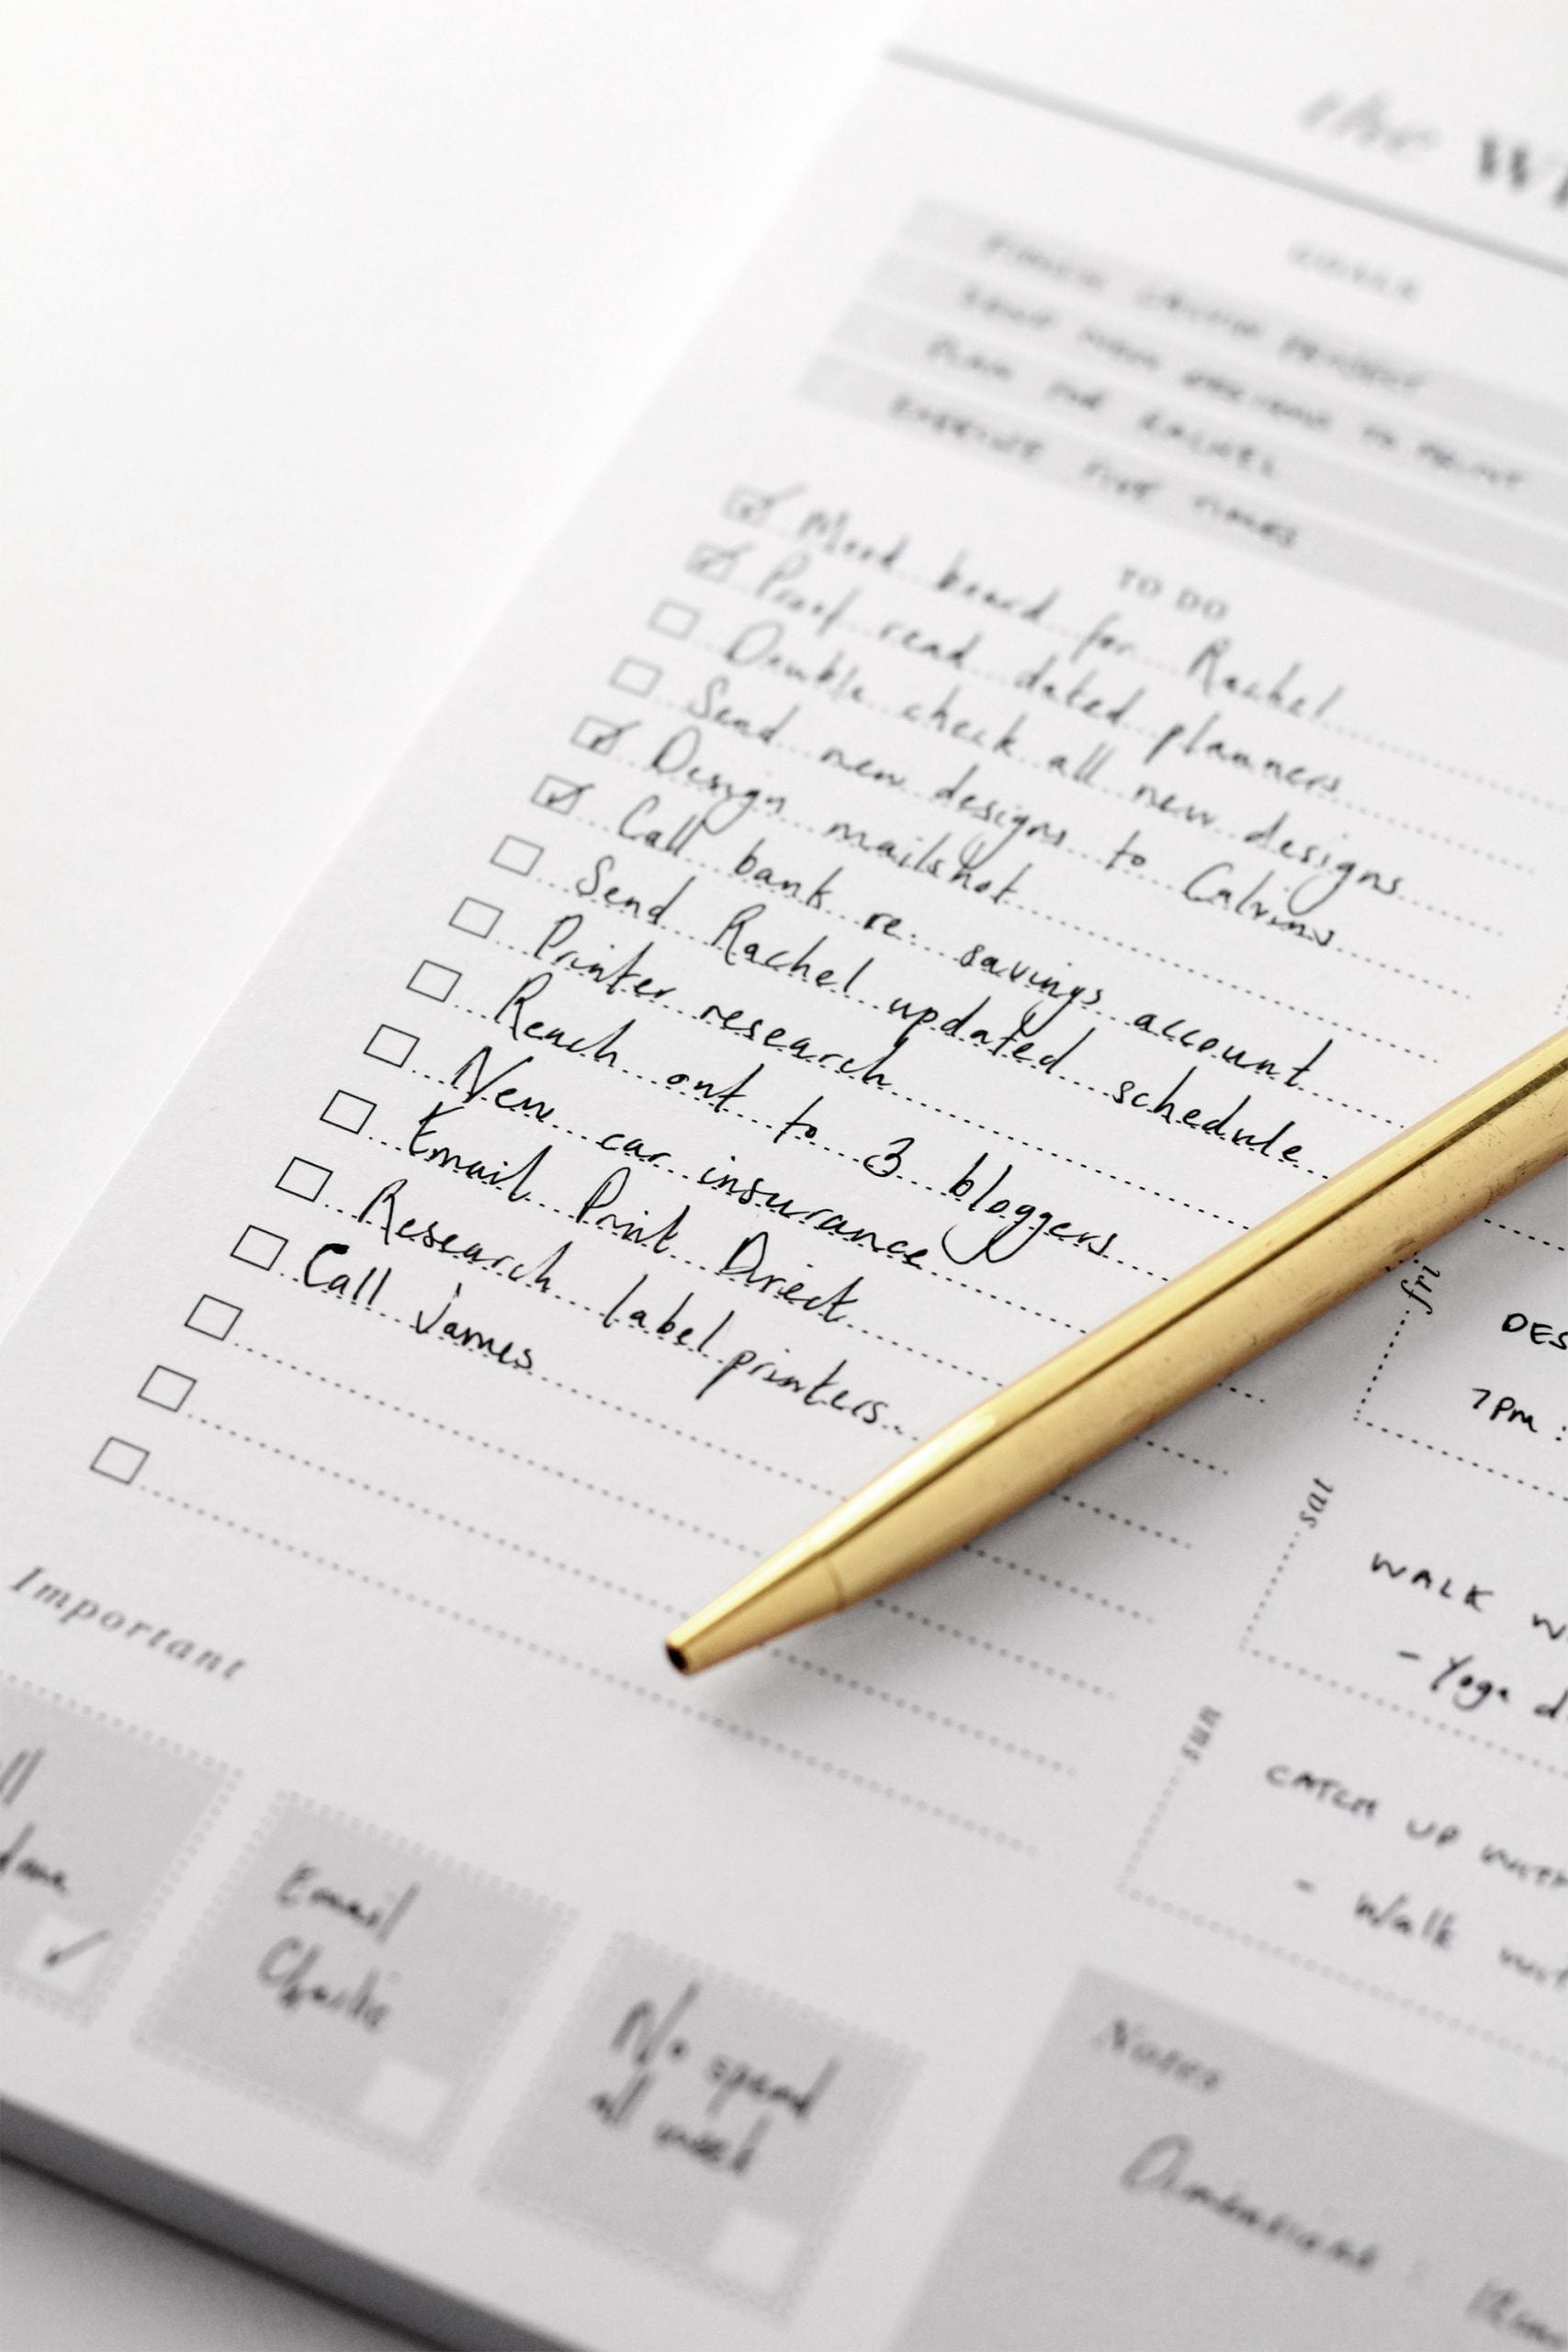 the
GOALS
PLAN FOR RACHEL
EXERCISE FIVE TIMES
TO DO
Mood board for Rachel
Proof read dated planners
Double check all new designs
Send new designs to Calvins
Design mailshot
Call bank re: savings account
Send Rachel updated schedule
Printer research
Reach out to 3 bloggers
New car insurance
Email Print Direct
Research label printers
Call James
fri
7pm :
sat
WALK
- Yoga
sun
CATCH UP WITH
- Walk
Important
Email
Charlie
No spend
all week
Notes
Dimensions :